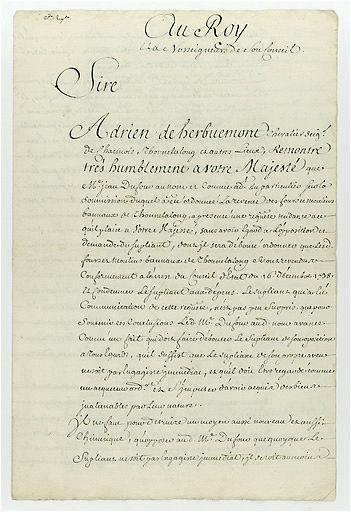 Au Roy
Et a Nosseigneurs de Son Conseil
Sire
Adrien de herbuemont Chevalier seigr
de Charmois, Thonnelalong, et autres Lieux, Remontre
très humblement a votre Majesté que
Mr. jean Dufour au nom et Comme ad. du particulier sur la
soumission duquel a été ordonné La revente des fours et moulins
bannaux de Thonnelalong, a presenté une requête tendante a ce
qu'il plaise a Votre Majesté, sans avoir Egard a L'opposition et
demande du Supliant, dont il sera debouté, ordonner que Les d.
fours et Moulins bannaux de Thonnelalong seront revendus
Conformement a larrest du Conseil d'Etat du 16e. Decembre 1738.
et Condamner Le Supliant aux depens. Le Supliant qui a eu
Communication de cette requête, n'est pas peu Surpris, que pour
soutenir ses Conclusions Led. Mr. Dufour aud. nom avance
Comme un fait qui doit faire debouter Le Supliant de son opposition
a tous Egards, qu'il suffit que Le Supliant de son propre aveu
ne soit pas Engagiste immediat, et qu'il doit être regardé comme
un acquereur ord.re et S'imputer d'avoir acquis des biens
inalienables par Leur nature.
Il ne faut pour detruire un moyen aussi nouveau et aussi
Chimerique, qu'opposer aud. Mr. Dufour que quoyque Le
Supliant ne soit pas Engagiste immediat, il seroit au moins